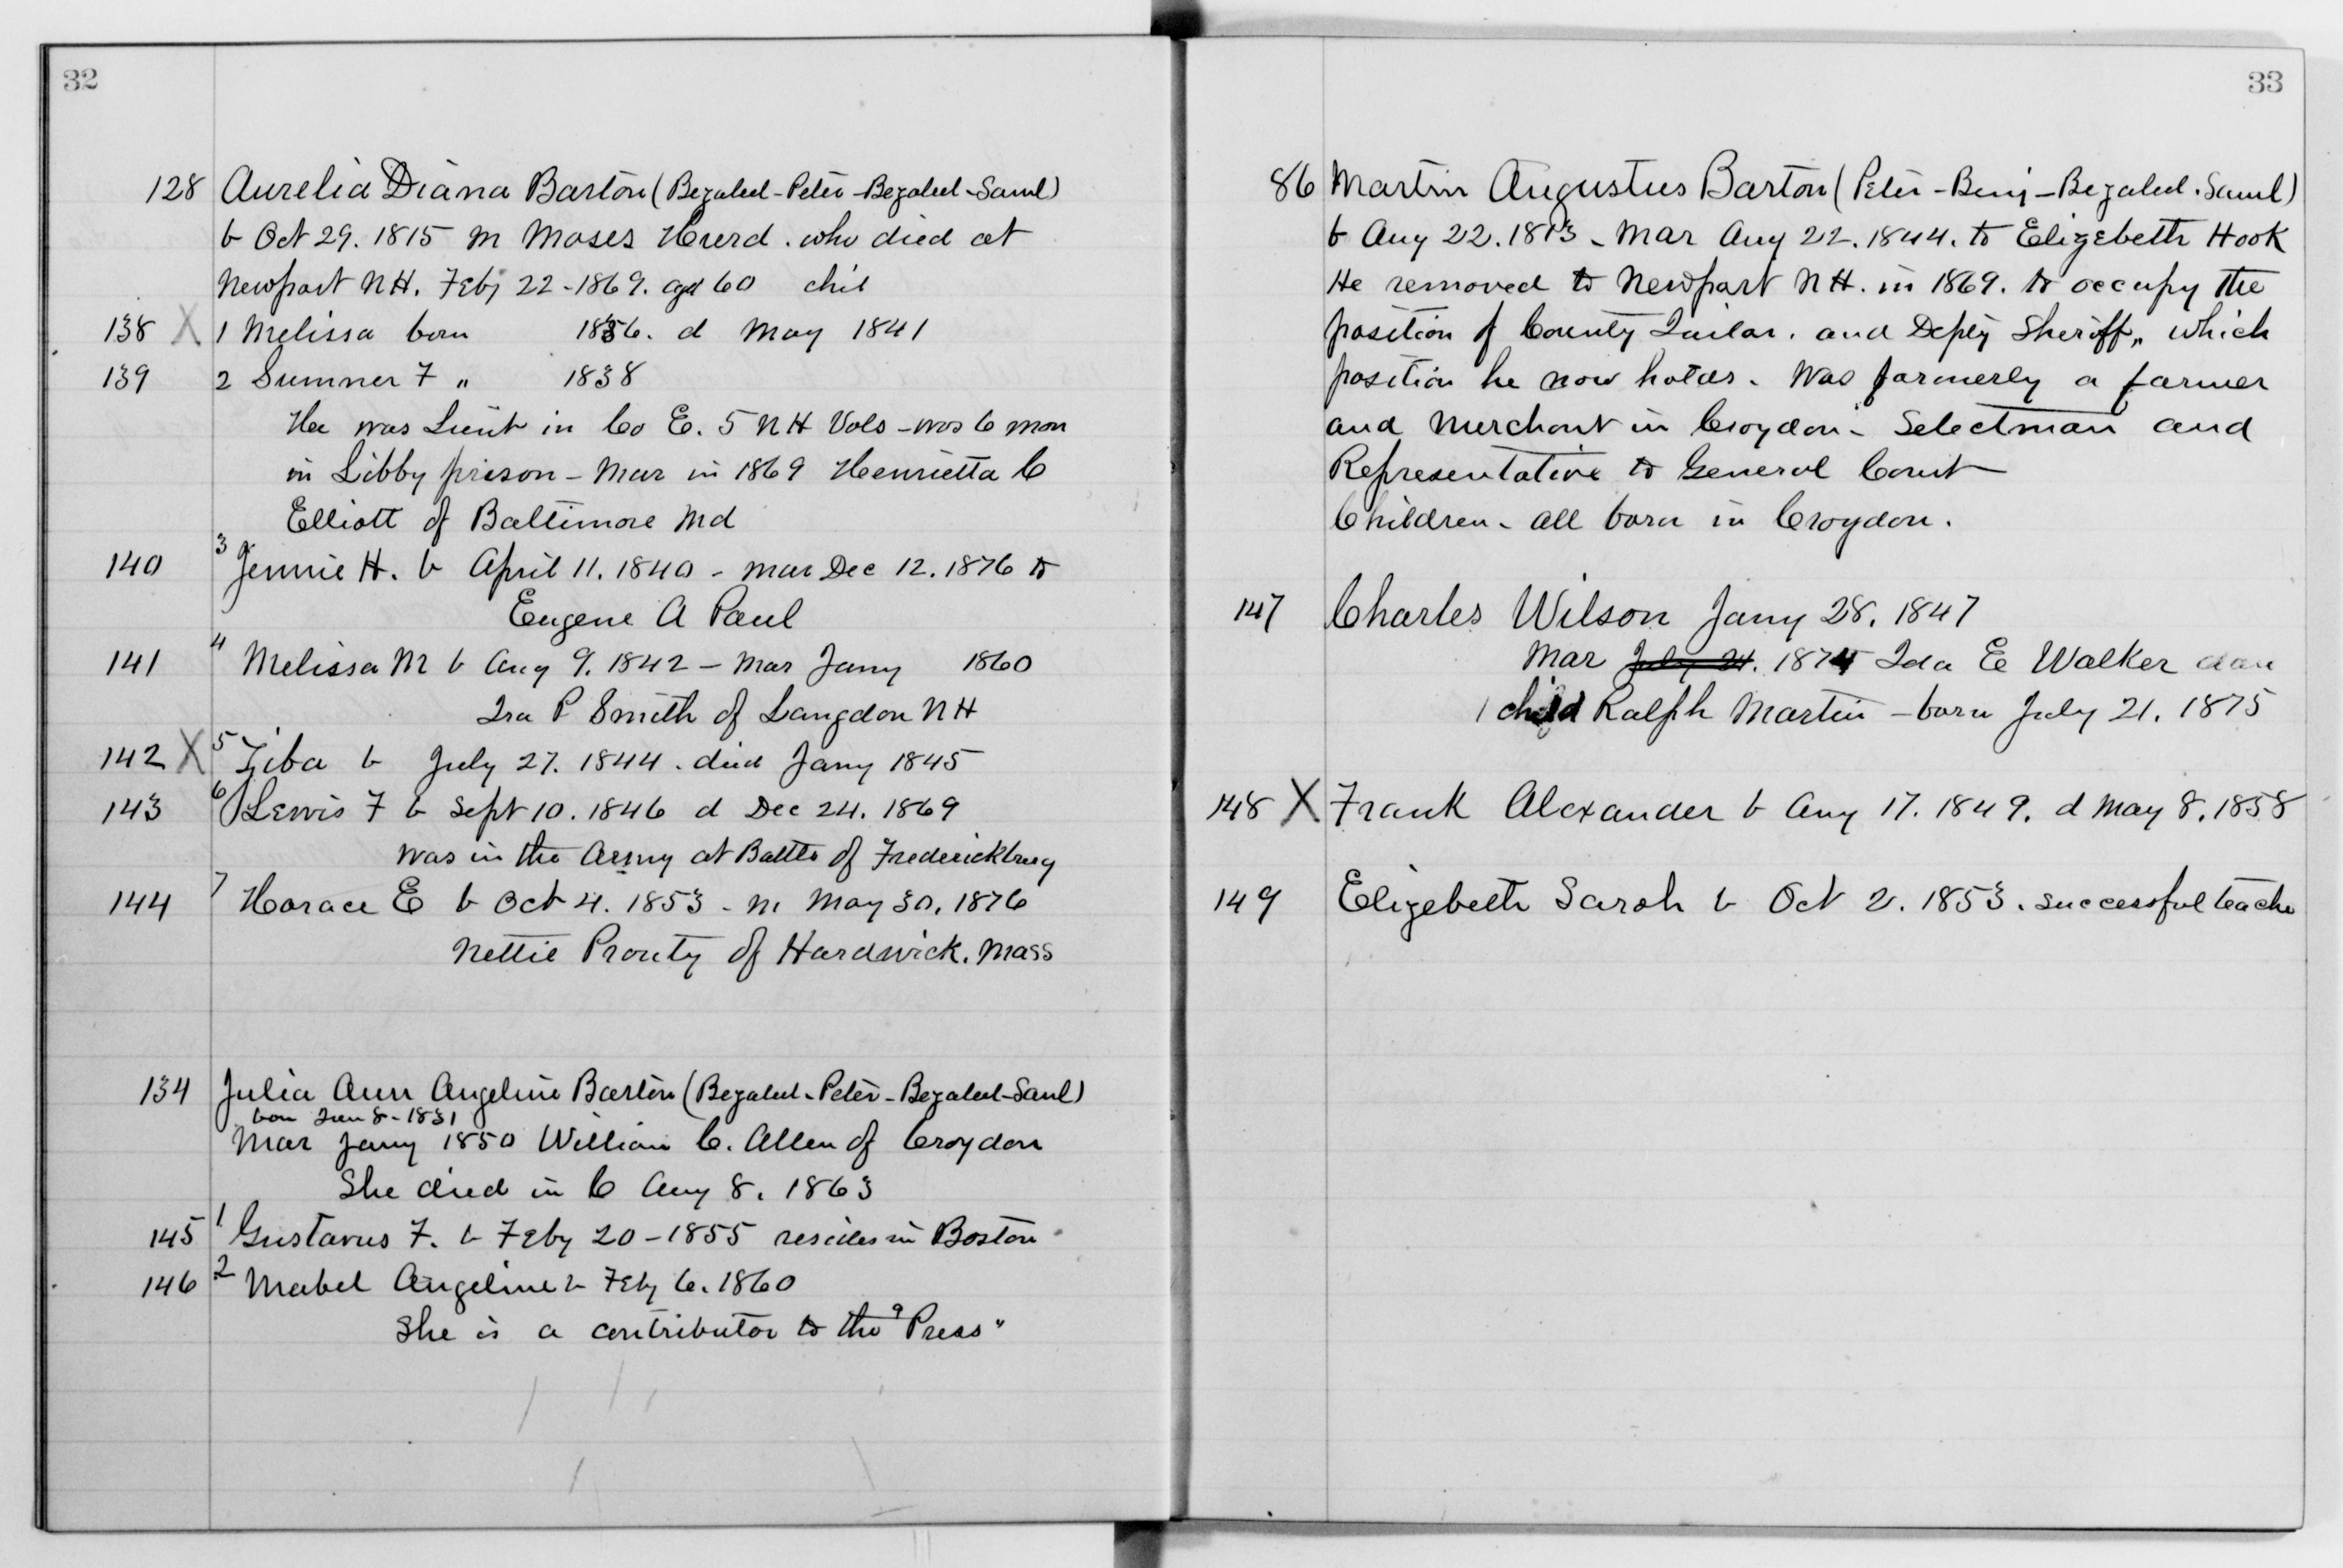 32
128 Aurelia Diana Barton (Bezaleel - Peter - Bezaleel - Saml)
b Oct 29. 1815 m Moses Hurd. who died at
Newport N H. Feby 22 - 1869. agd 60 chil
138 X 1 Melissa born 1836. d May 1841
139 2 Sumner F " 1838
He was Lieut in Co E. 5 N H Vols - was 6 mon
in Libby prison - Mar in 1869 Henrietta C
Elliott of Baltimore Md
140 3 Jennie H. b April 11. 1840 - mar Dec 12. 1876 to
Eugene A Paul
141 4 Melissa M b Aug 9. 1842 - Mar Jany 1860
Ira P Smith of Langdon N H
142 X 5 Ziba b July 27. 1844. died Jany 1845
143 6 Lewis F b Sept 10. 1846 d Dec 24. 1869
was in the Army at Battle of Fredericksburg
144 7 Horace E b Oct 4. 1853 - m May 30. 1876
Nettie Prouty of Hardwick. Mass
134 Julia Ann Angeline Barton (Bezaleel - Peter - Bezaleel - Saml)
born Jun 8 - 1831
Mar Jany 1850 William C. Allen of Croydon
She died in C Aug 8. 1863
145 1 Gustavus F. b Feby 20 - 1855 resides in Boston
146 2 Mabel Angeline b Feby 6. 1860
She is a contributor to the "Press"
33
86 Martin Augustus Barton (Peter - Benj - Bezaleel. Saml)
b Aug 22. 1813 - Mar Aug 22. 1844. to Elizebeth Hook
He removed to Newport N H. in 1869. to occupy the
position of County Jailor. and Depty Sheriff,, which
position he now holds. Was formerly a farmer
and Merchant in Croydon - Selectman and
Representative to General Court
Children - all born in Croydon.
147 Charles Wilson Jany 28. 1847
Mar July 24. 1874 Ida E Walker dau
1 child Ralph Martin - born July 21. 1875
148 X Frank Alexander b Aug 17. 1849. d May 8. 1858
149 Elizebeth Sarah b Oct 2. 1853. successful teache